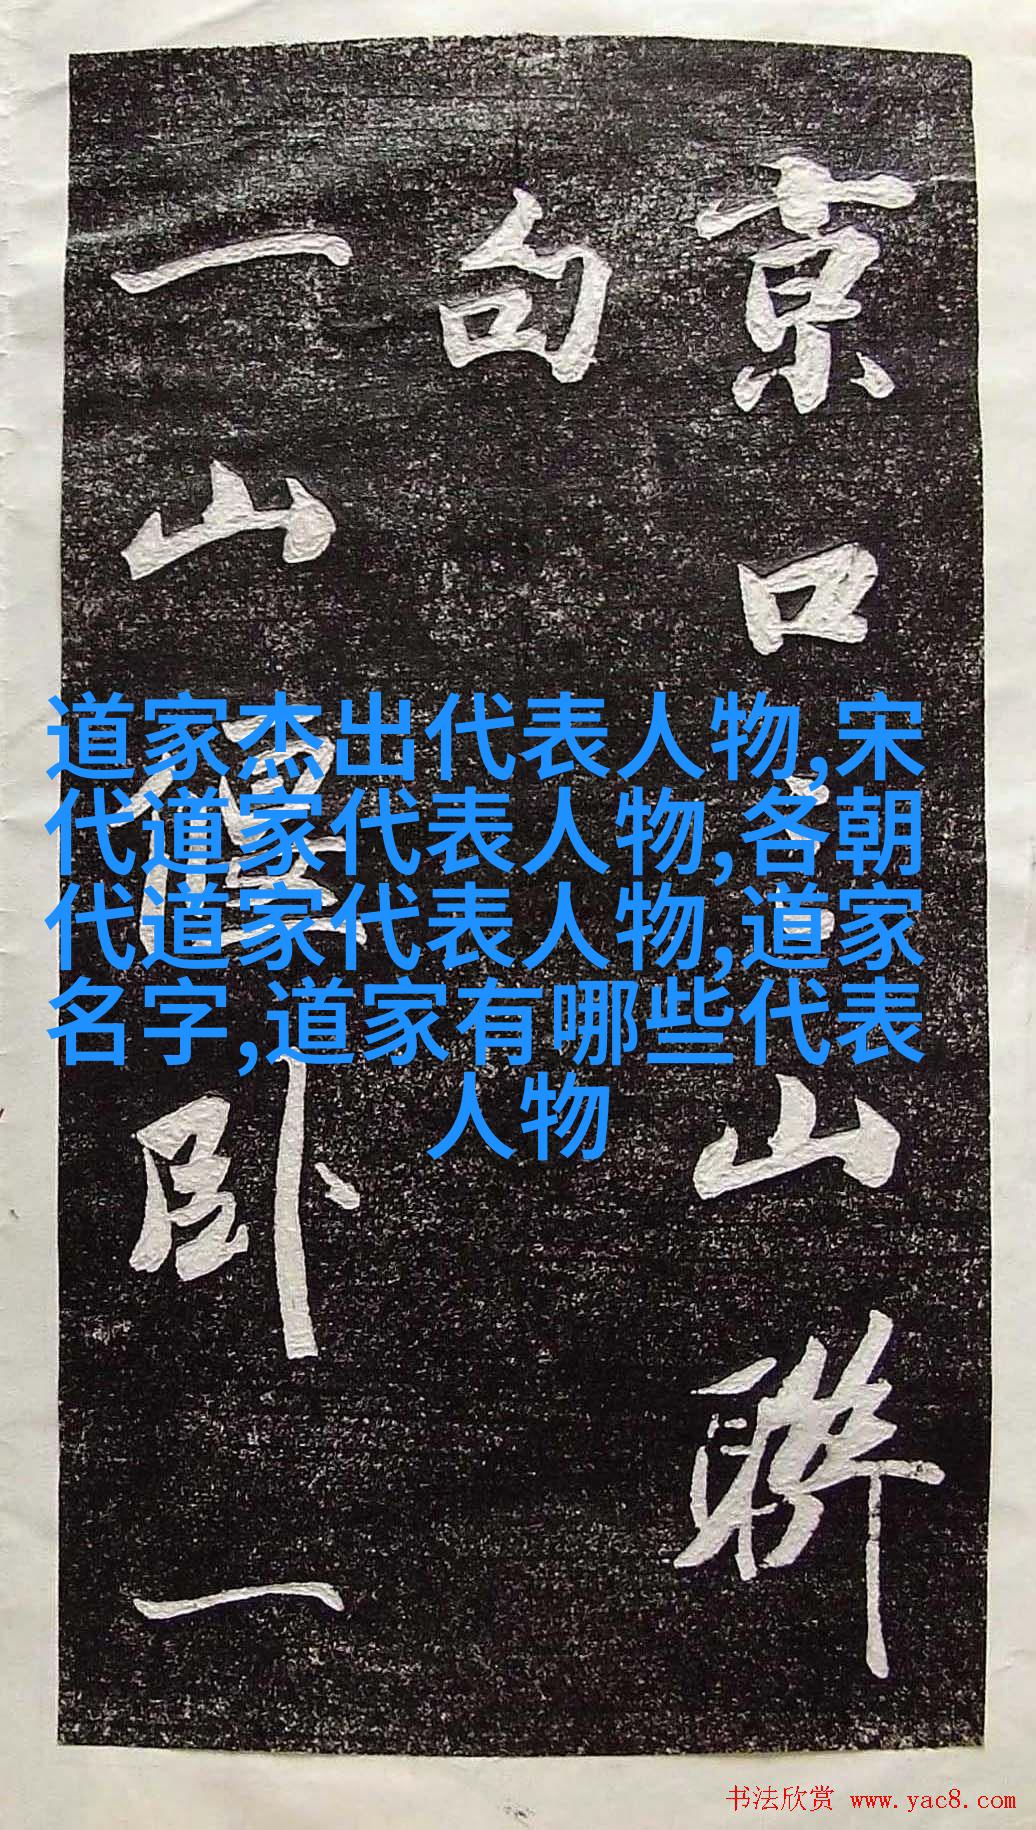 京口山聯
句
一山卧一
道家杰出代表人物,宋
代道家代表人物,各朝
代道家代表人物,道家
名字,道家有哪些代表
人物
书法欣赏 www.yac8.com